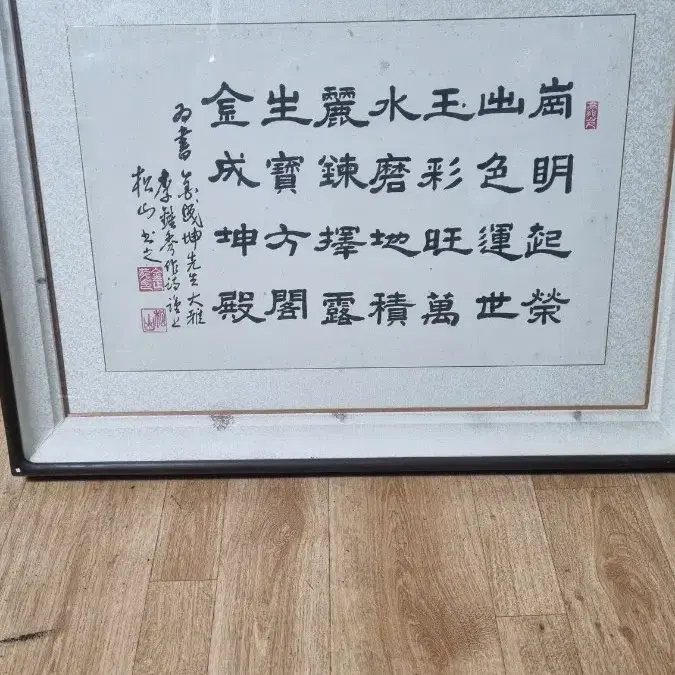 金生麗水玉出崗
成寶鍊磨彩色明
坤方擇地旺運起
殿閣露積萬世榮
為書
金成坤先生大雅
李鍾秀作詩謹上
松山書之
松山